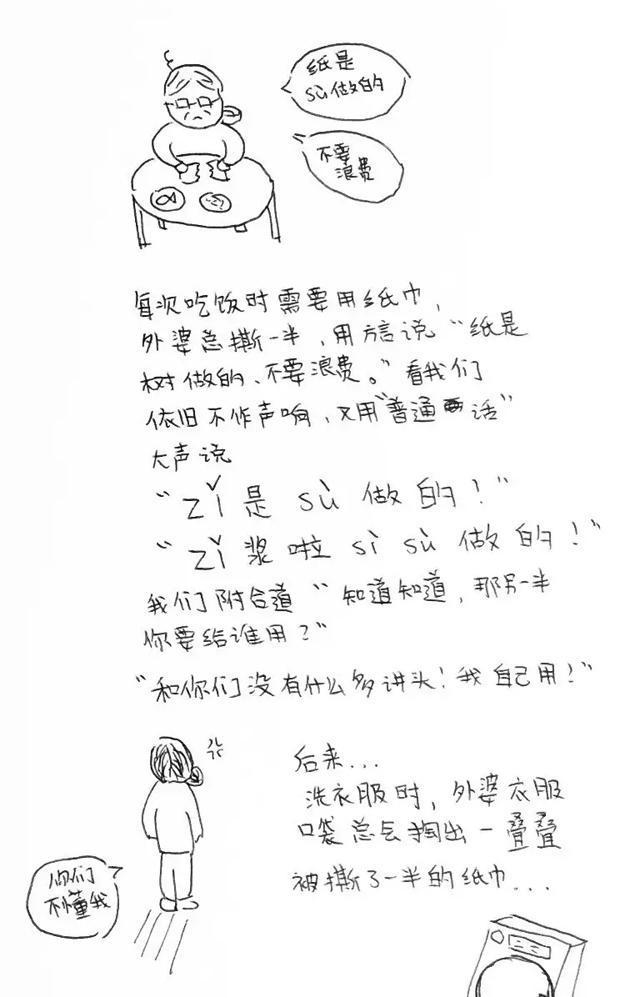 纸是
sù做的
不要
浪费
每次吃饭时需要用纸巾,
外婆总撕一半,用方言说“纸是
树做的、不要浪费。”看我们
依旧不作声响,又用“普通话”
大声说
“zǐ是 sù 做的!”
“zǐ浆啦 sì sù 做的!”
我们附合道“知道知道,那另一半
你要给谁用?”
“和你们没有什么多讲头!我自己用!”
后来...
洗衣服时,外婆衣服
口袋总会掏出一叠叠
被撕了一半的纸巾...
你们
不懂我